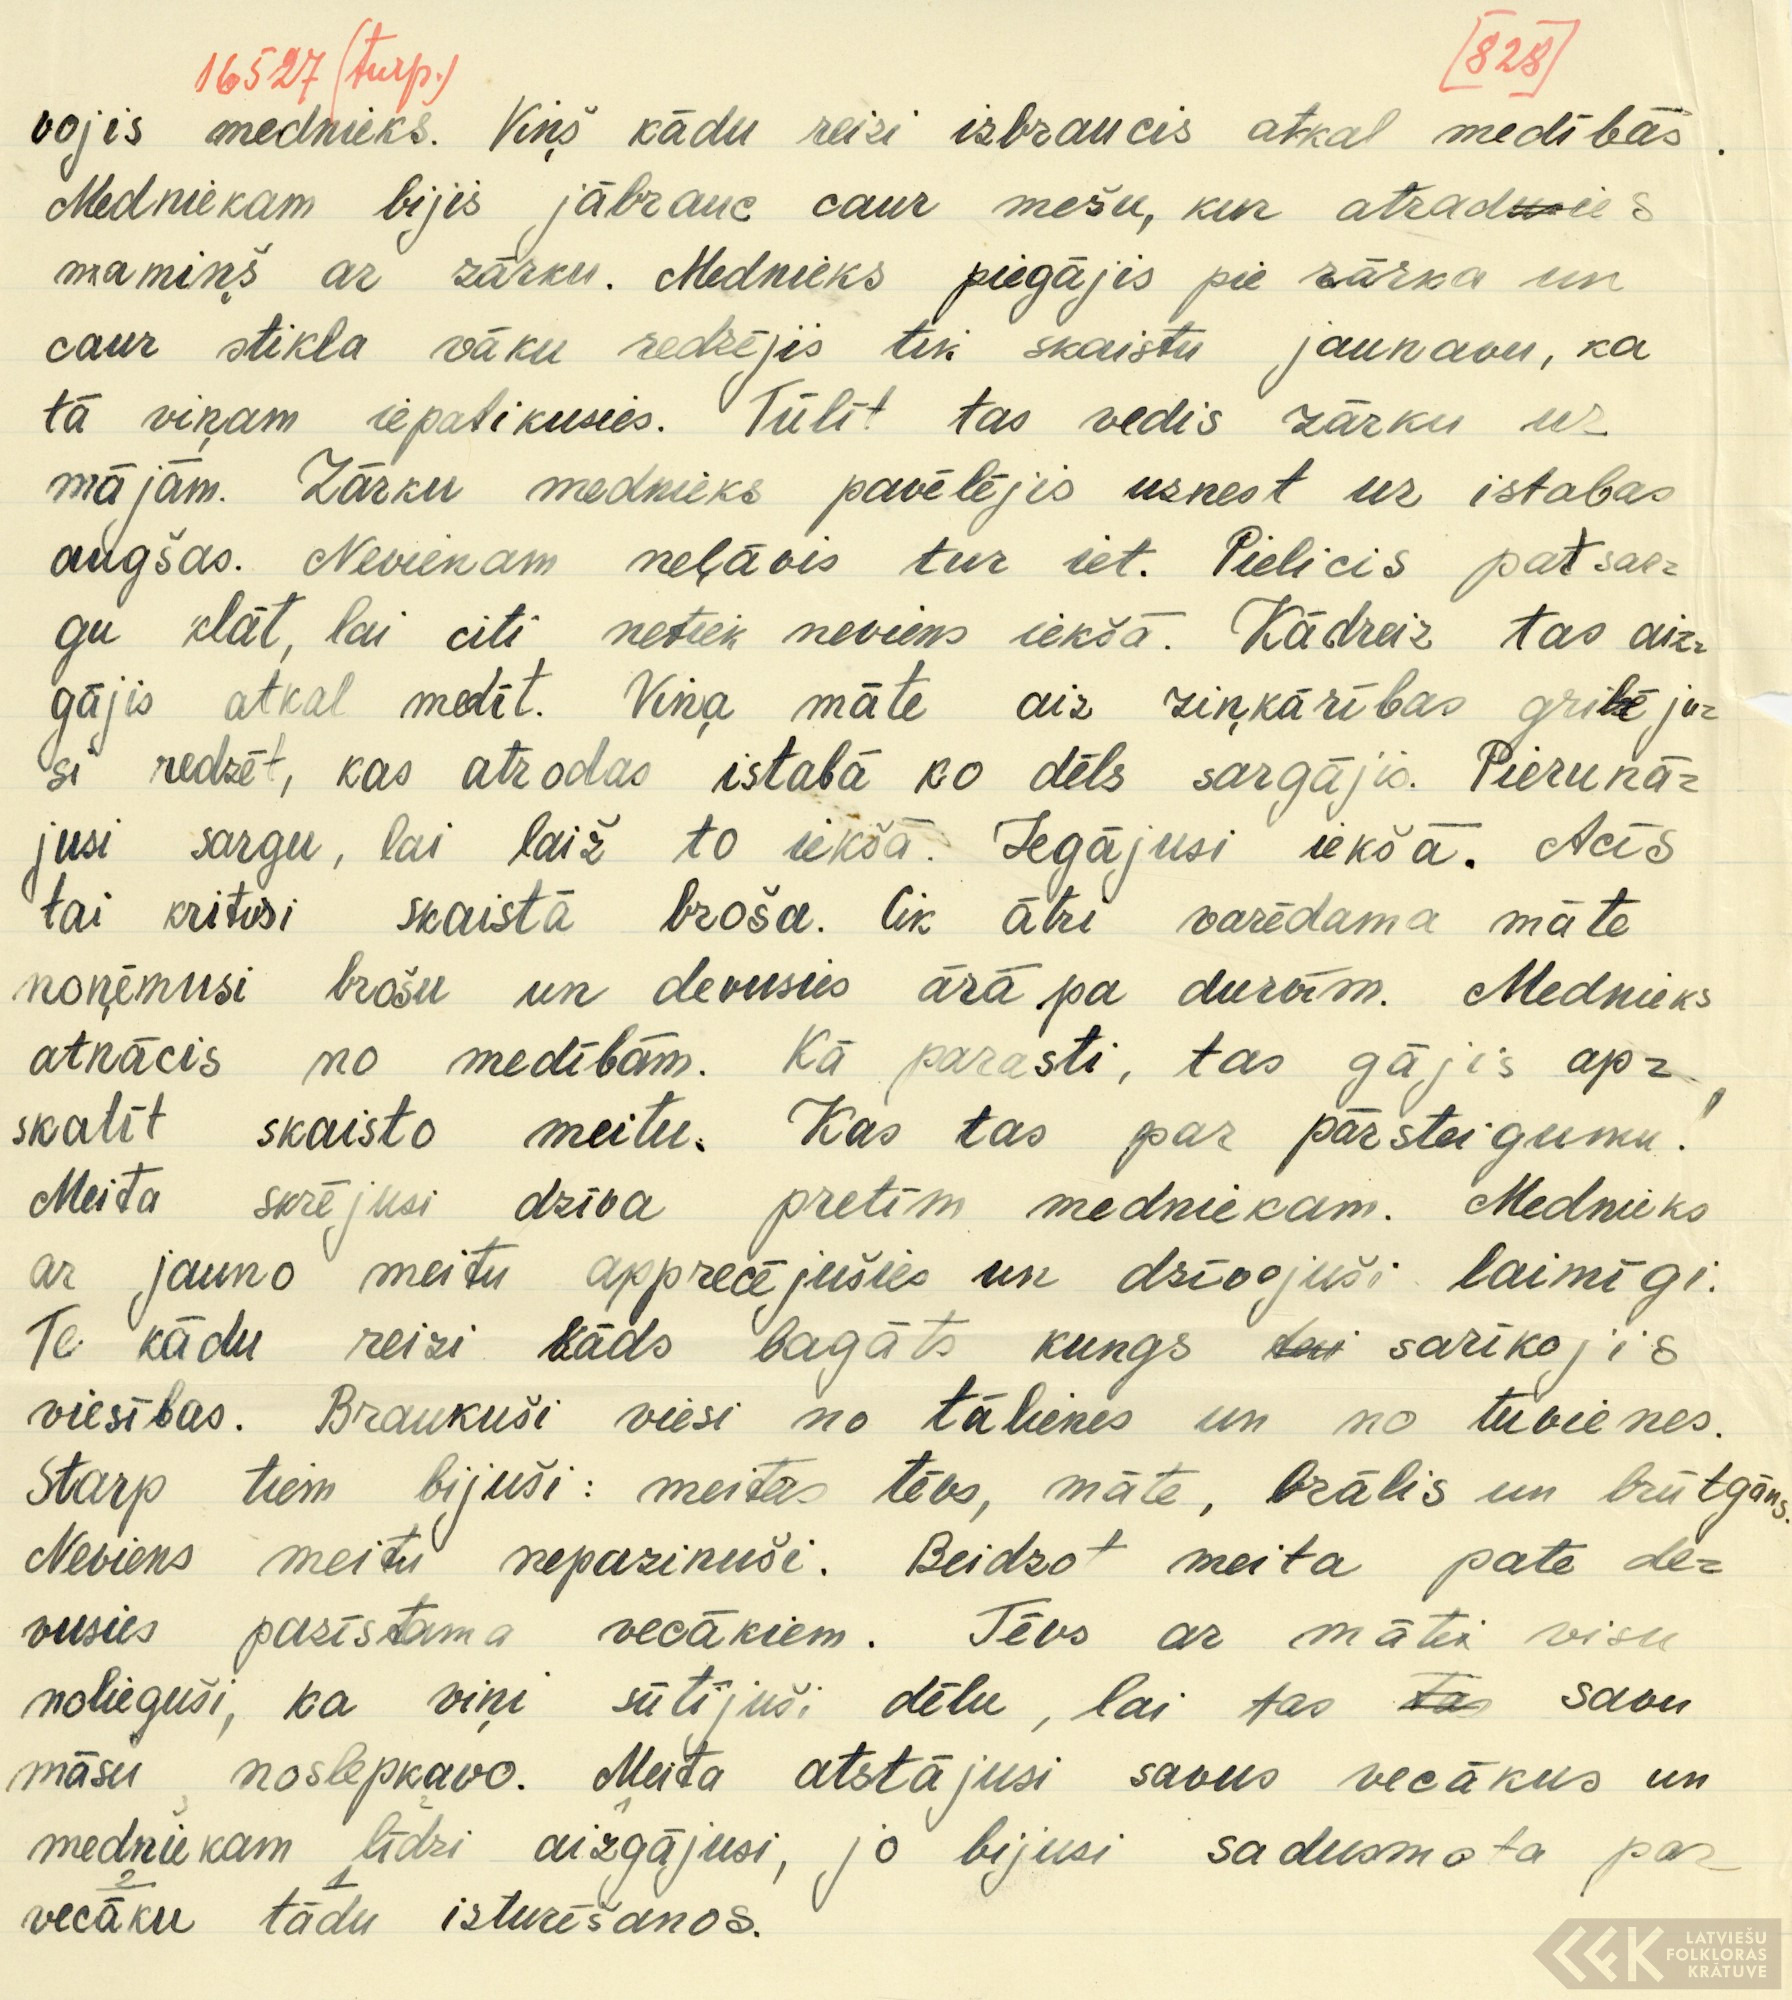 16527 (turp.) [828]
vojis mednieks. Viņš kādu reizi izbraucis atkal medībās.
Medniekam bijis jābrauc caur mežu, kur atradies
mamiņš ar zārku. Mednieks piegājis pie zārka un
caur stikla vāku redzējis tik skaistu jaunavu, ka
tā viņam iepatikusies. Tūlīt tas vedis zārku uz
mājām. Zārku mednieks pavēlējis uznest uz istabas
augšas. Nevienam neļāvis tur iet. Pielicis pat sar-
gu klāt, lai citi netiek neviens iekšā. Kādreiz tas aiz-
gājis atkal medīt. Viņa māte aiz ziņkārības gribēju-
si redzēt, kas atrodas istabā ko dēls sargājis. Pierunā-
jusi sargu, lai laiž to iekšā. Iegājusi iekšā. Acīs
tai kritusi skaistā broša. Cik ātri varēdama māte
noņēmusi brošu un devusies ārā pa durvīm. Mednieks
atnācis no medībām. Kā parasti, tas gājis ap-
skatīt skaisto meitu. Kas tas par pārsteigumu!
Meita skrējusi dzīva pretīm medniekam. Mednieks
ar jauno meitu apprecējušies un dzīvojuši laimīgi.
Te kādu reizi kāds bagāts kungs sarīkojis
viesības. Braukuši viesi no tālienes un no tuvienes.
Starp tiem bijuši: meitas tēvs, māte, brālis un brūtgāns.
Neviens meitu nepazinuši. Beidzot meita pate de-
vusies pazīstama vecākiem. Tēvs ar māti visu
nolieguši, ka viņi sūtījuši dēlu, lai tas savu
māsu noslepkavo. Meita atstājusi savus vecākus un
medniekam līdzi aizgājusi, jo bijusi sadusmota par
vecāku tādu izturēšanos.
LATVIEŠU
FOLKLORAS
KRĀTUVE